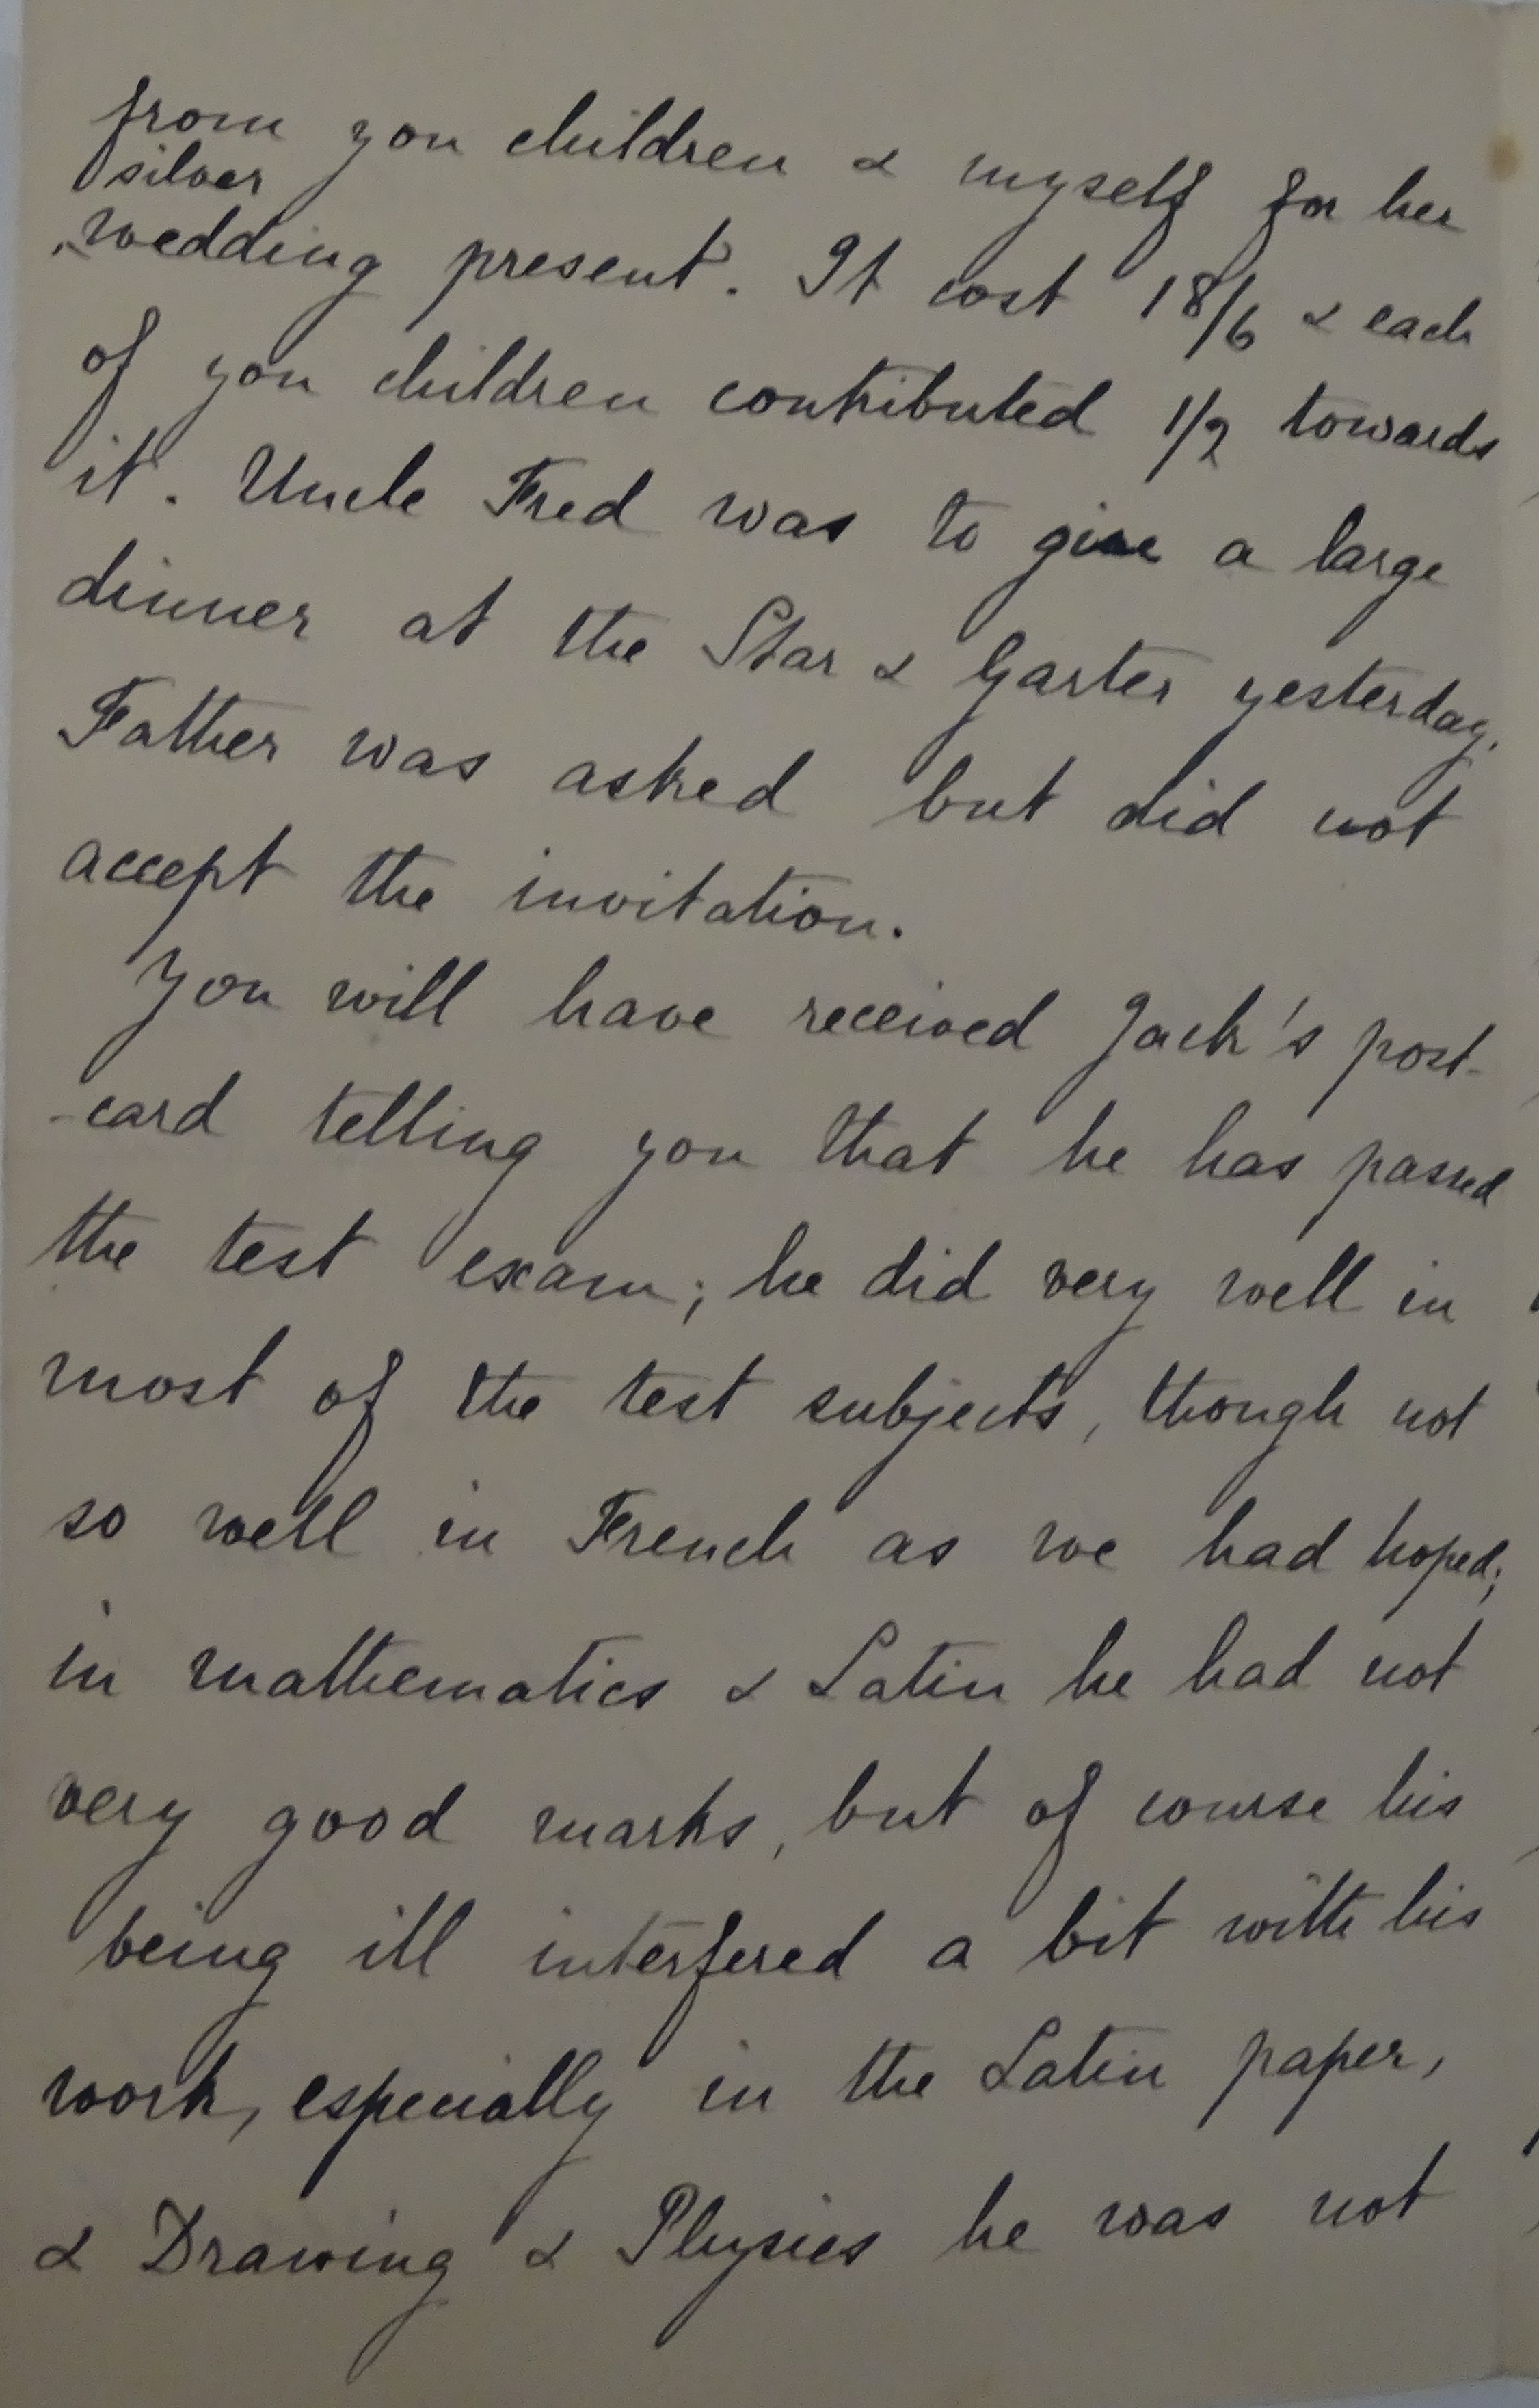 from you children & myself for her
silver
wedding present. It cost 18/6 & each
of you children contributed 1/2 towards
it. Uncle Fred was to give a large
dinner at the Star & Garter yesterday.
Father was asked but did not
accept the invitation.
You will have received Jack's post-
-card telling you that he has passed
the test exam; he did very well in
most of the test subjects, though not
so well in French as we had hoped;
in mathematics & Latin he had not
very good marks, but of course his
being ill interfered a bit with his
work, especially in the Latin paper,
& Drawing & Physics he was not